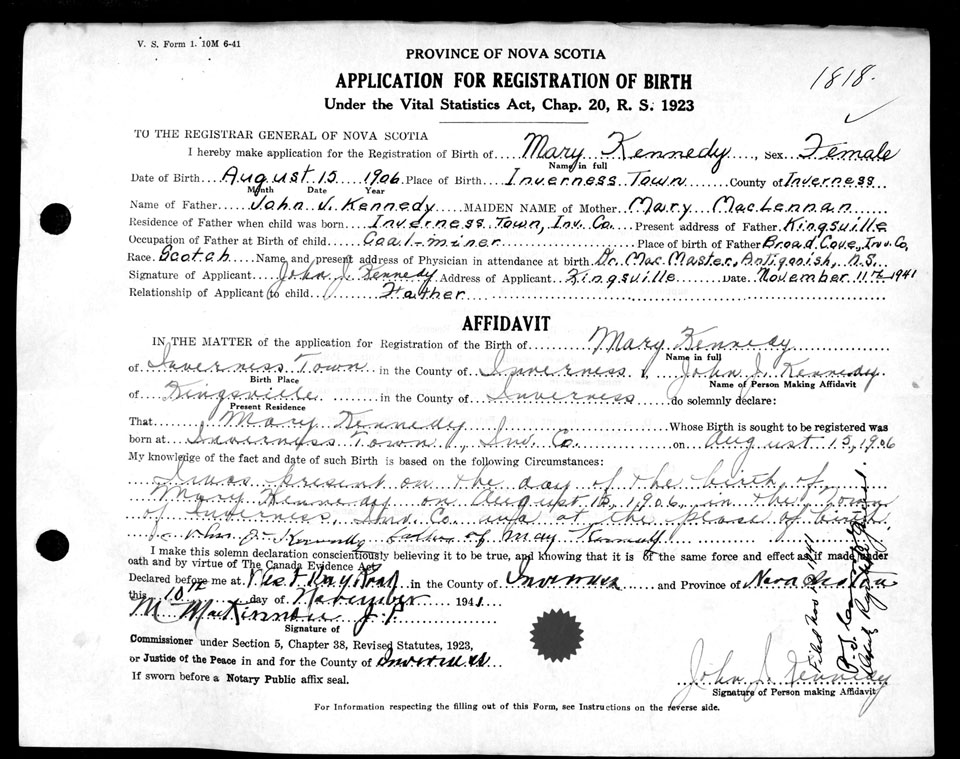 V. S. Form 1. 10M 6-41
PROVINCE OF NOVA SCOTIA
APPLICATION FOR REGISTRATION OF BIRTH
1818.
Under the Vital Statistics Act, Chap. 20, R. S. 1923
TO THE REGISTRAR GENERAL OF NOVA SCOTIA
I hereby make application for the Registration of Birth of Mary Kennedy, Sex Female
Name in full
Date of Birth August 15 1906 Place of Birth Inverness Town County of Inverness
Month Date Year
Name of Father John J. Kennedy MAIDEN NAME of Mother Mary MacLennan
Residence of Father when child was born Inverness Town, Inv. Co. Present address of Father Kingsville
Occupation of Father at Birth of child Coal-miner Place of birth of Father Broad Cove, Inv. Co,
Race Scotch Name and present address of Physician in attendance at birth Dr. MacMaster, Antigonish, N.S.
Signature of Applicant John J. Kennedy Address of Applicant Kingsville Date November 11th 1941
Relationship of Applicant to child Father
AFFIDAVIT
IN THE MATTER of the application for Registration of the Birth of Mary Kennedy
Name in full
of Inverness Town in the County of Inverness I, John J. Kennedy
Birth Place Name of Person Making Affidavit
of Kingsville in the County of Inverness do solemnly declare:
Present Residence
That Mary Kennedy Whose Birth is sought to be registered was
born at Inverness Town, Inv. Co. on August 15, 1906
My knowledge of the fact and date of such Birth is based on the following Circumstances:
I was present on the day of the birth of
Mary Kennedy on August 15, 1906, in the Town
of Inverness, Inv. Co. was at the place of birth
John J. Kennedy father of Mary Kennedy
I make this solemn declaration conscientiously believing it to be true, and knowing that it is of the same force and effect as if made under
oath and by virtue of The Canada Evidence Act
Declared before me at West Bay Road in the County of Inverness and Province of Nova Scotia
this 10th day of November 1941
M MacKinnon J.P.
Signature of
Commissioner under Section 5, Chapter 38, Revised Statutes, 1923,
or Justice of the Peace in and for the County of Inverness
If sworn before a Notary Public affix seal.
John J. Kennedy
Signature of Person making Affidavit
Filed Nov 1941
Deputy Registrar
For Information respecting the filling out of this Form, see Instructions on the reverse side.